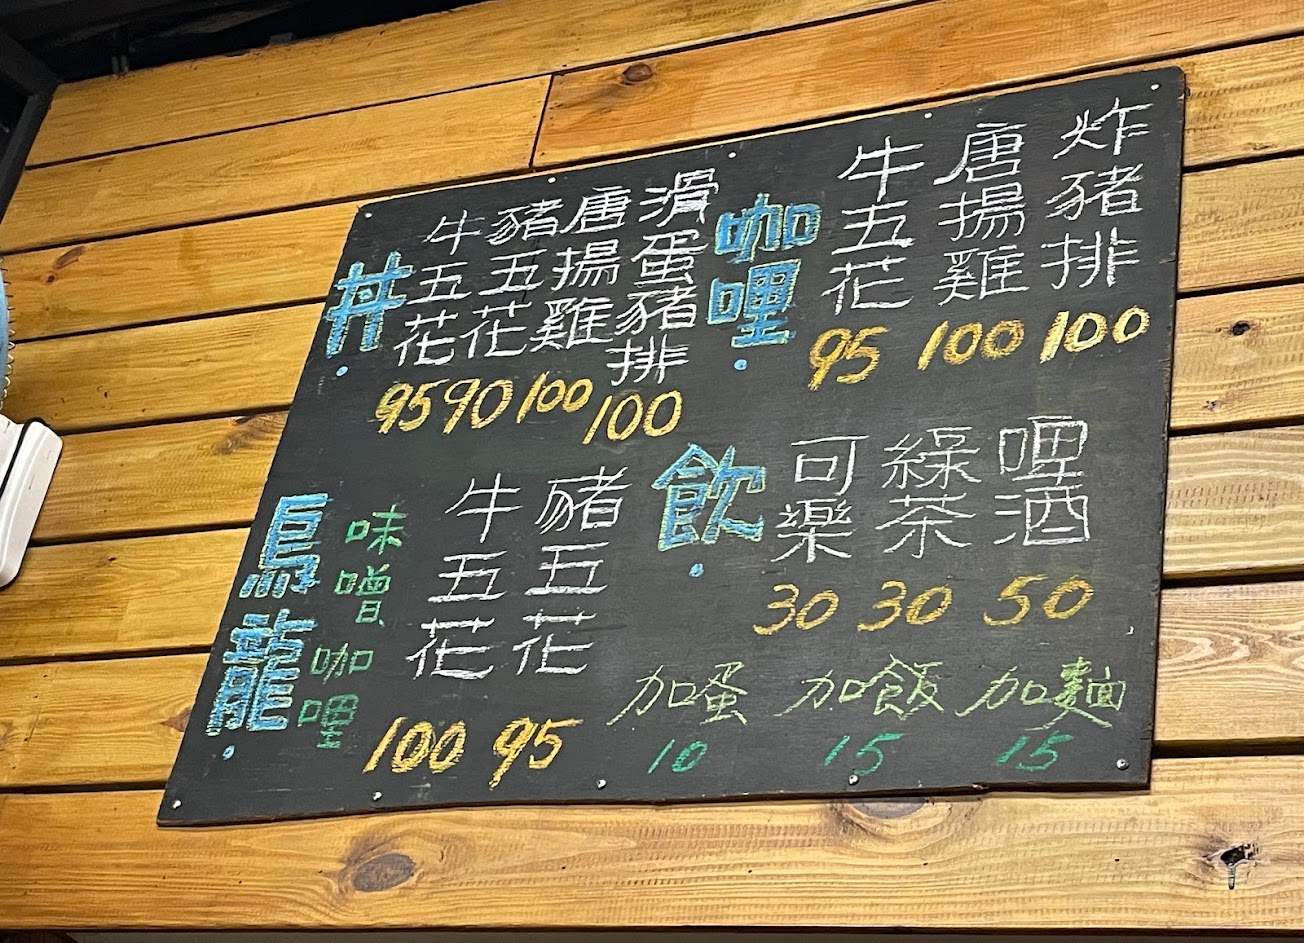 丼
牛五花
95
豬五花
90
唐揚雞
100
滑蛋豬排
100
咖哩
牛五花
95
唐揚雞
100
炸豬排
100
烏龍
味噌
咖哩
牛五花
100
豬五花
95
飲
可樂
30
綠茶
30
哩酒
50
加蛋
10
加飯
15
加麵
15